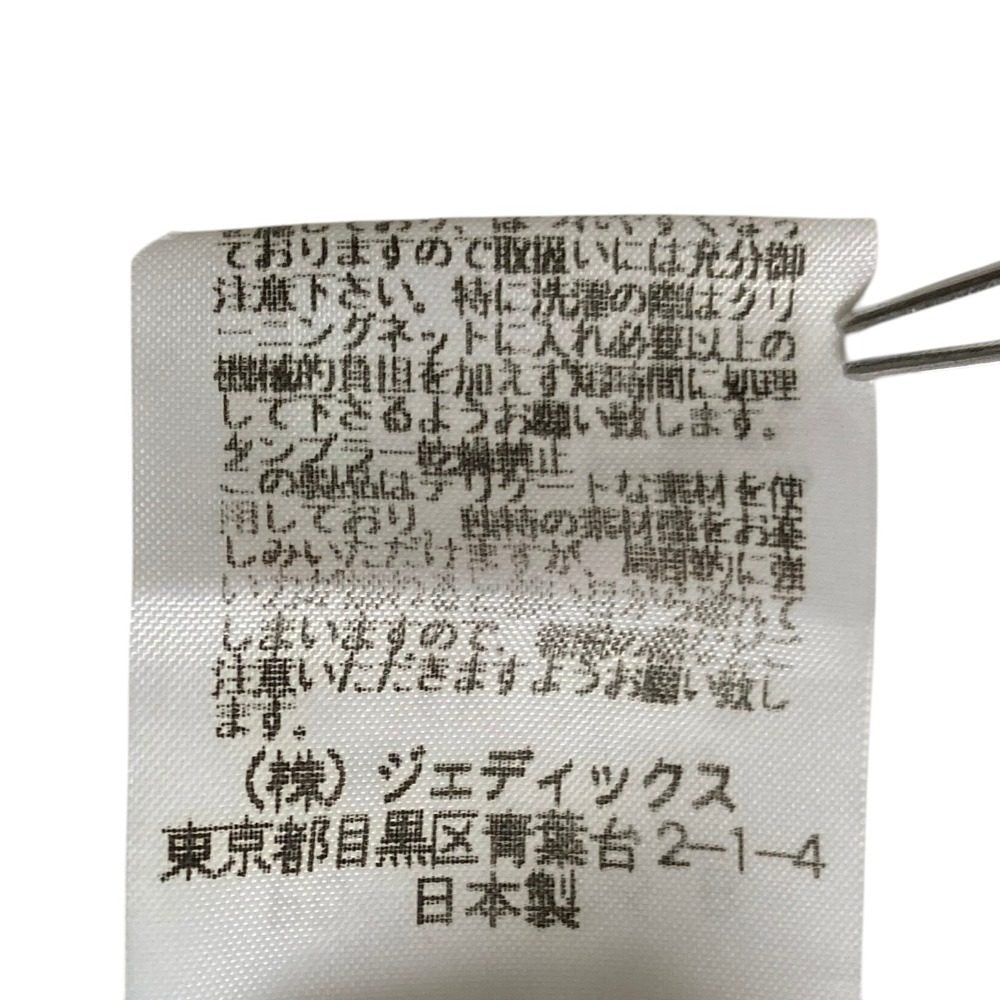 ておりますので取扱いには充分御
注意下さい。特に洗濯の際はクリ
ーニングネットに入れ必要以上の
機械的負担を加えず短時間に処理
して下さるようお願い致します。
タンブラー乾燥禁止
この製品はデリケートな素材を使
用しており、独特の素材感をお楽
しみいただけますが、
しまいますので、
注意いただきますようお願い致し
ます。
(株)ジェディックス
東京都目黒区青葉台2-1-4
日本製